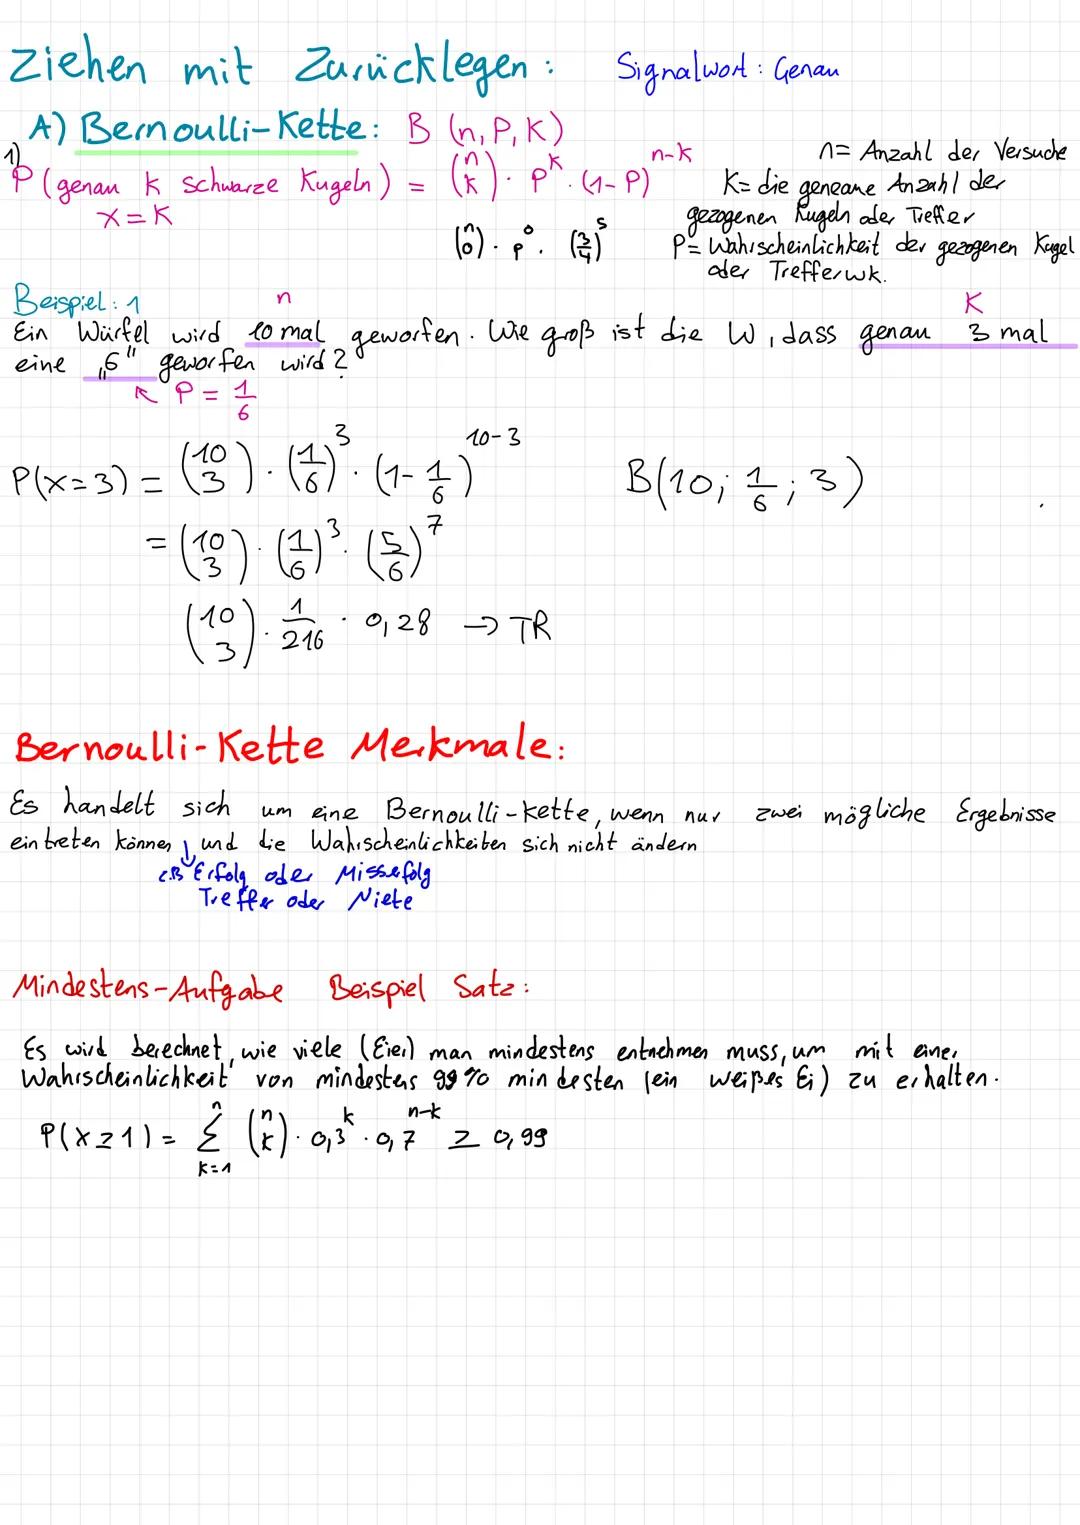 Ziehen mit Zurücklegen: Signalwort: Genau
A) Bernoulli-Kette: B (n, P, K)
1)
P (genau K schwarze Kugeln) = (n K) · P^K · (1-P)^n-K
n = Anzahl der Versuche
X = K
K = die geneane Anzahl der
gezogenen Kugeln oder Treffer
(n 0) · P^0 · (3/4)^5
P = Wahrscheinlichkeit der gezogenen Kugel
oder Trefferwk.
Beispiel: 1
n
K
Ein Würfel wird 10 mal geworfen. Wie groß ist die W, dass genau 3 mal
eine „6" geworfen wird?
↖ P = 1/6
P(X=3) = (10 3) · (1/6)^3 · (1-1/6)^10-3
B(10; 1/6; 3)
= (10 3) · (1/6)^3 · (5/6)^7
(10 3) · 1/216 · 0,28 → TR
Bernoulli-Kette Merkmale:
Es handelt sich um eine Bernoulli-Kette, wenn nur zwei mögliche Ergebnisse
eintreten können, und die Wahrscheinlichkeiten sich nicht ändern
z.B Erfolg oder Misserfolg
Treffer oder Niete
Mindestens-Aufgabe Beispiel Satz:
Es wird berechnet, wie viele (Eier) man mindestens entnehmen muss, um mit einer
Wahrscheinlichkeit von mindestens 99% mindesten (ein weißes Ei) zu erhalten.
P(X≥1) = n Σ k=1 (n k) · 0,3^k · 0,7^n-k ≥ 0,99